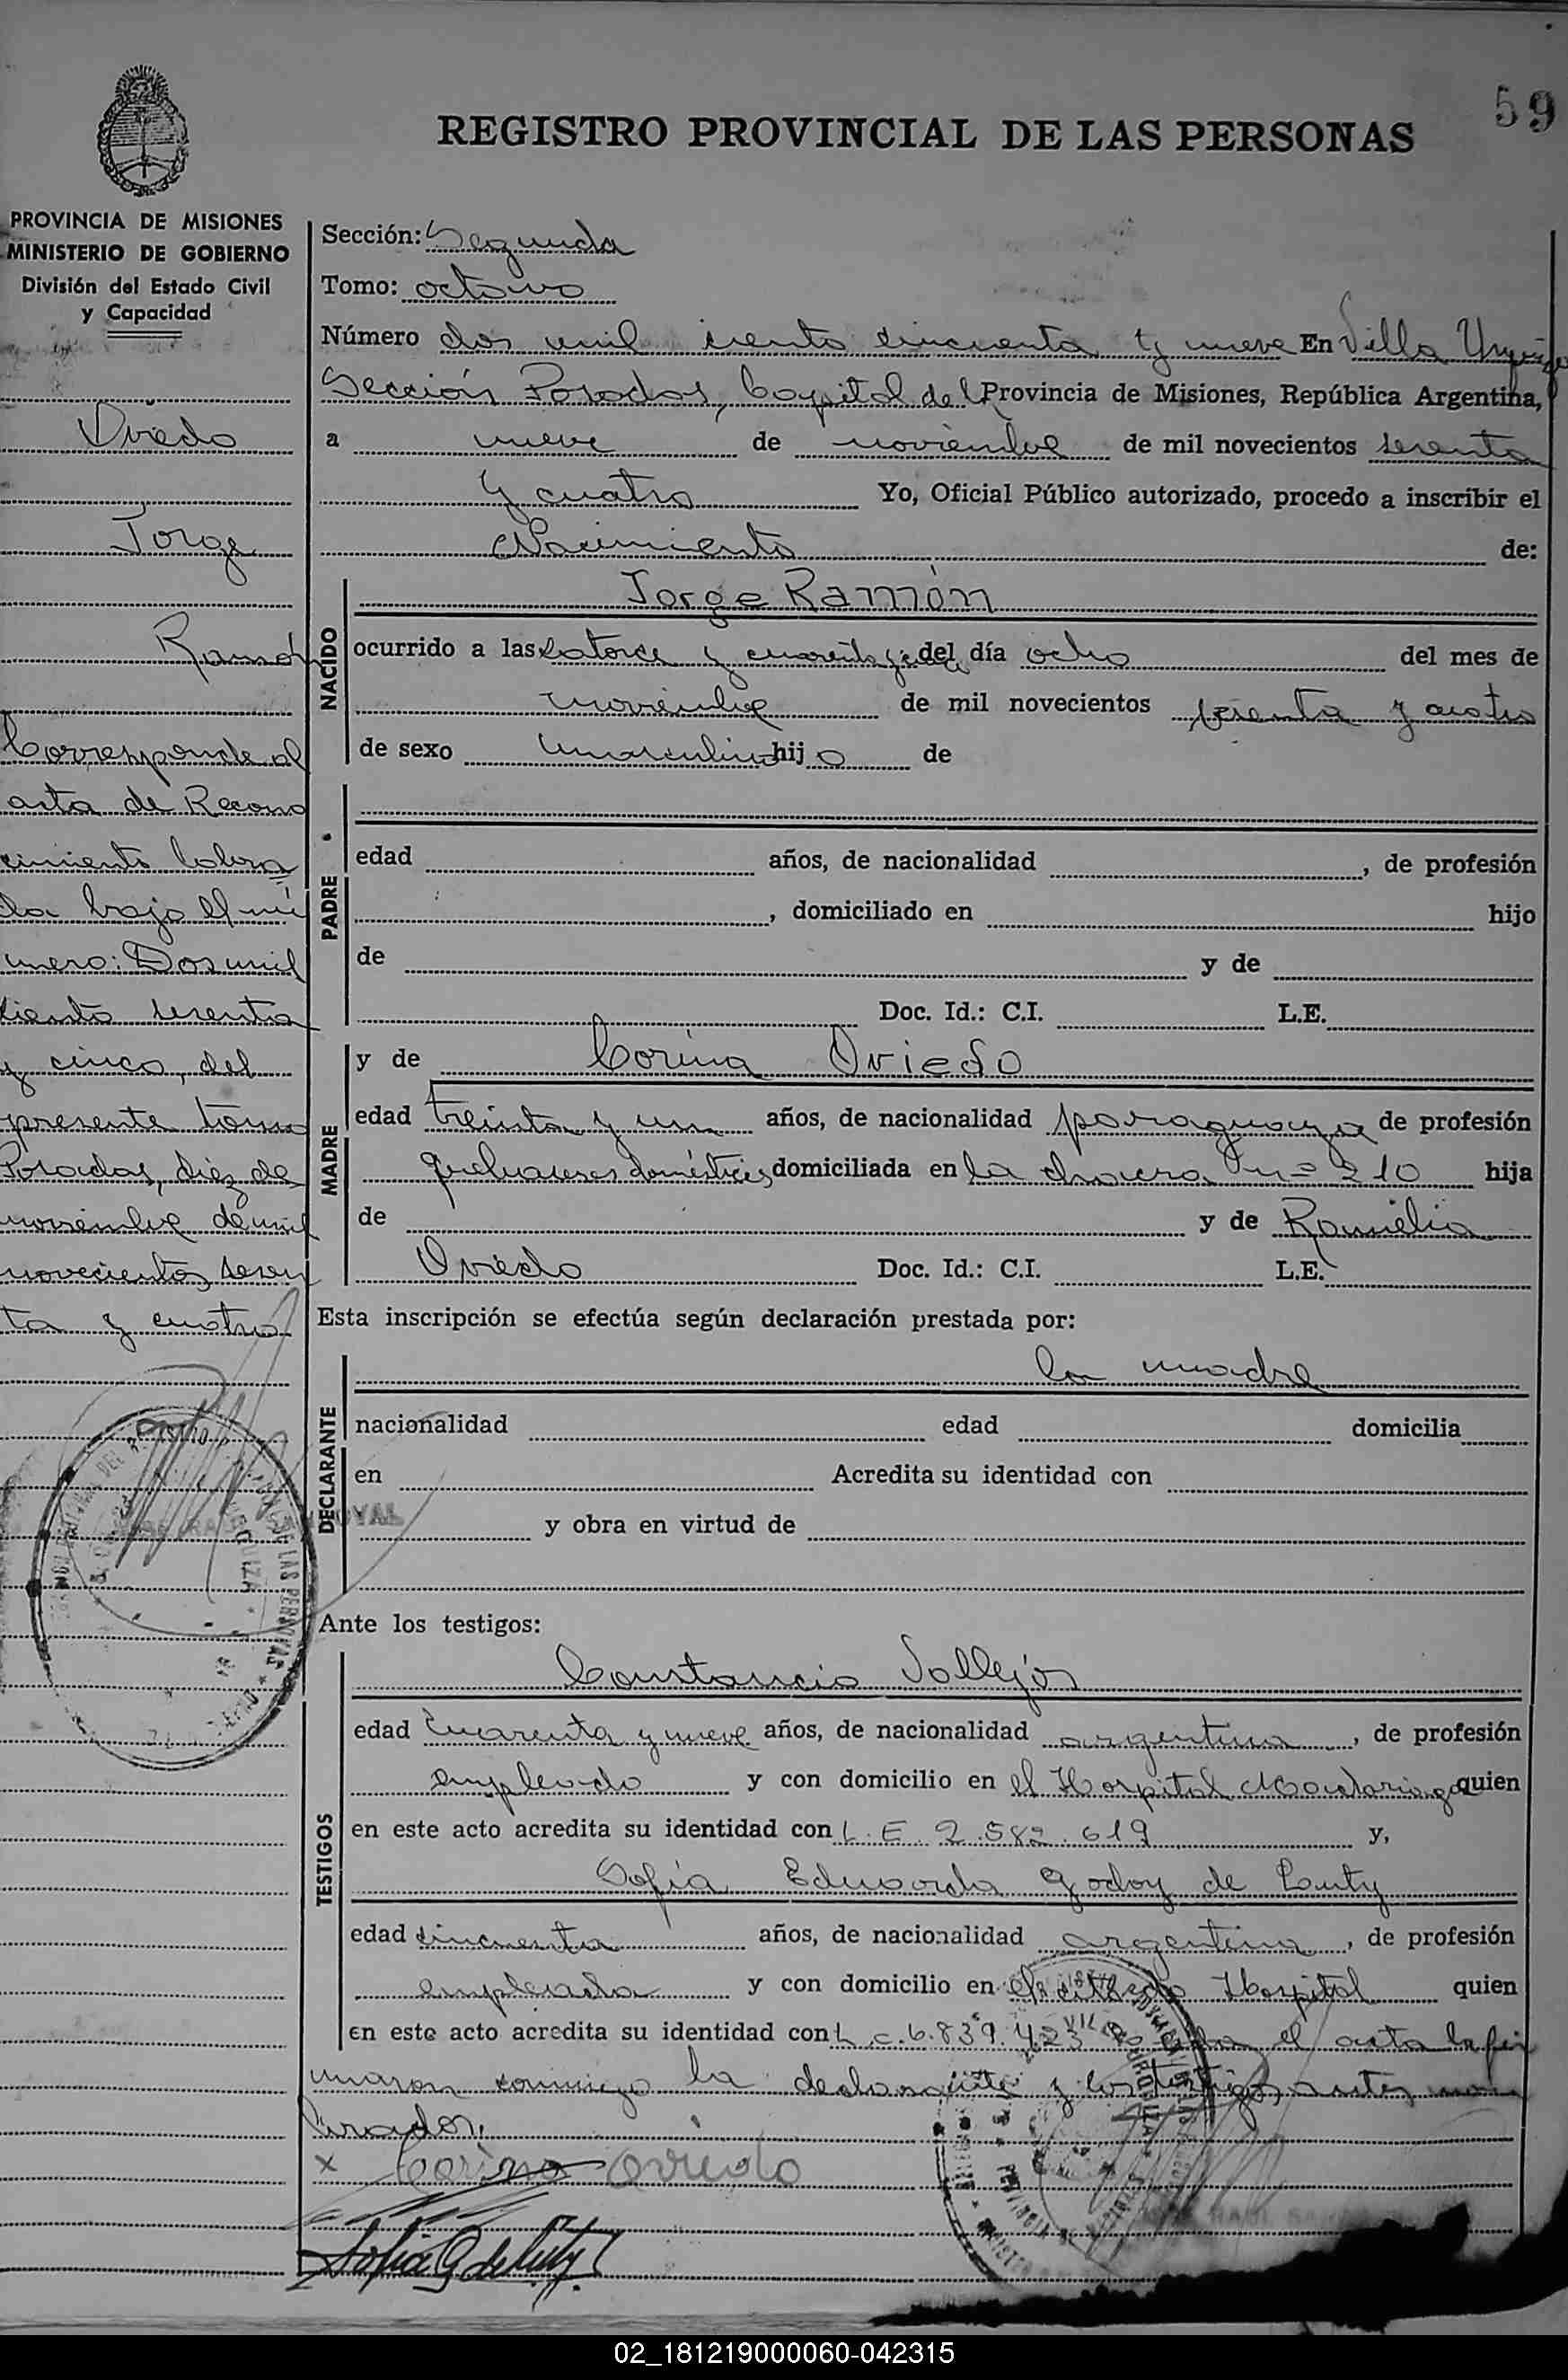 59
REGISTRO PROVINCIAL DE LAS PERSONAS
PROVINCIA DE MISIONES
MINISTERIO DE GOBIERNO
División del Estado Civil
y Capacidad
Oviedo
Jorge
Ramón
Corresponde al
acta de Recono
cimiento labra
da bajo el nú
mero: Dos mil
ciento sesenta
y cinco, del
presente tomo
Posadas, diez de
noviembre de mil
novecientos sesen
ta y cuatro
Sección: Segunda
Tomo: octavo
Número dos mil ciento cincuenta y nueve En Villa Urquiza
Sección Posadas, Capital de la Provincia de Misiones, República Argentina,
a nueve de noviembre de mil novecientos sesenta
y cuatro Yo, Oficial Público autorizado, procedo a inscribir el
Nacimiento de:
NACIDO
Jorge Ramón
ocurrido a las catorce y cuarenta y del día ocho del mes de
noviembre de mil novecientos sesenta y cuatro
de sexo masculino hijo de
PADRE
edad años, de nacionalidad , de profesión
, domiciliado en hijo
de y de
Doc. Id.: C.I. L.E.
MADRE
y de Corina Oviedo
edad treinta y un años, de nacionalidad paraguaya de profesión
quehaceres domésticos domiciliada en la chacra nº 210 hija
de y de Ramelia
Oviedo Doc. Id.: C.I. L.E.
Esta inscripción se efectúa según declaración prestada por:
DECLARANTE
la madre
nacionalidad edad domicilia
en Acredita su identidad con
y obra en virtud de
Ante los testigos:
TESTIGOS
Constancio Vallejos
edad cuarenta y nueve años, de nacionalidad argentina, de profesión
empleado y con domicilio en el Hospital Madariaga quien
en este acto acredita su identidad con L.E. 2.582.619 y,
Sofía Eduarda Godoy de Luty
edad cincuenta años, de nacionalidad argentina, de profesión
empleada y con domicilio en el citado Hospital quien
en este acto acredita su identidad con L.C. 6.839.423 el acta la fir
maron conmigo la declarante y los testigos antes nom
brados.
x Corina Oviedo
Sofia G de Luty
02_181219000060-042315